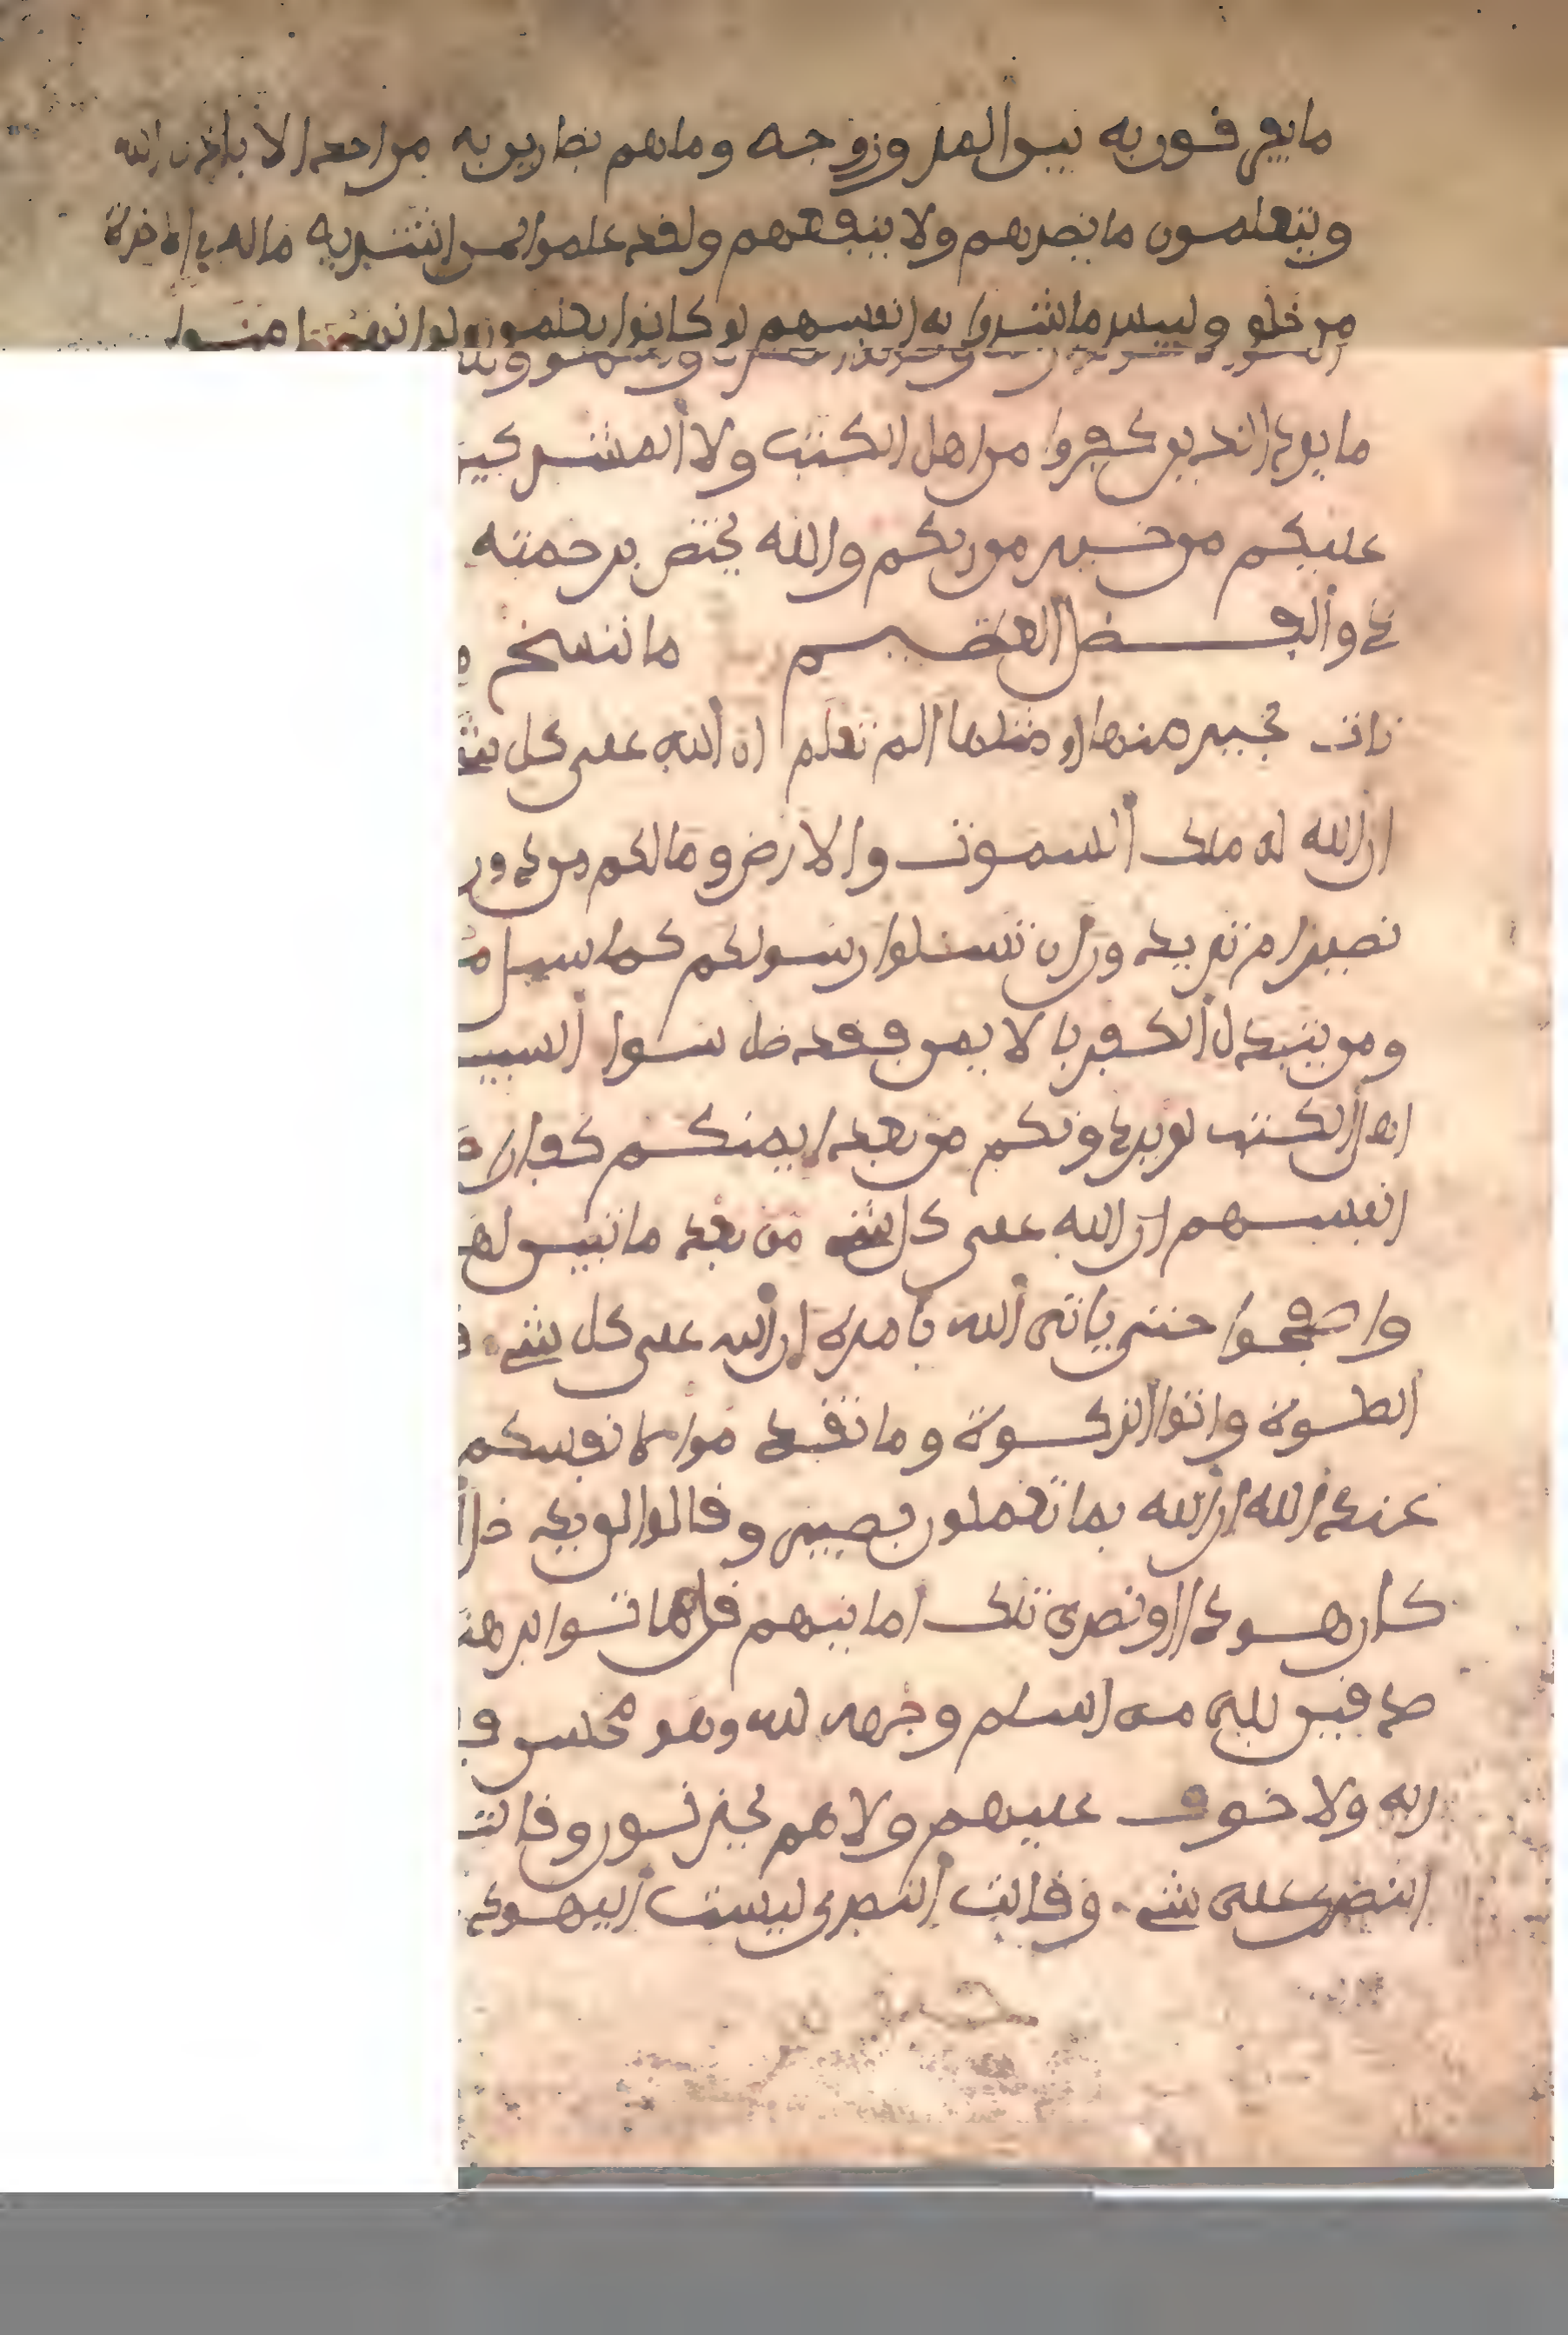 ما يفرقون به بين المر وزوجه وماهم بضارين به من احد الا باذن الله
ويتعلمون ما يضرهم ولا ينفعهم ولقد علموا لمن اشتريه ماله في الاخرة
من خلق ولبيس ما شروا به انفسهم لو كانوا يعلمون ولو انهم امنوا
ما يود الذين كفروا من اهل الكتب ولا المشركين
عليكم من خير من ربكم والله يختص برحمته
ذو الفضل العظيم ما ننسخ
نات بخير منها او مثلها الم تعلم ان الله على كل
ان الله له ملك السموت والارض ومالكم من دون
نصير ام تريد ون ان تسلوا رسولكم كما سيل
ومن يتبدل الكفر بالايمن فقد ضل سوا السبيل
اهل الكتب لو يردونكم من بعد ايمنكم كفارا
انفسهم ان الله على كل شي من بعد ما تبين لهم
واصفحوا حتى ياتي الله بامره ان الله على كل شي
الصلوة واتوا الزكوة وما تقدموا لانفسكم
عند الله ان الله بما تعملون بصير وقالوا لن يدخل
كان هودا او نصرى تلك امانيهم قل هاتوا برهنكم
صدقين بلى من اسلم وجهه لله وهو محسن
ربه ولا خوف عليهم ولا هم يحزنون وقالت
النصرى على شي وقالت النصرى ليست اليهود